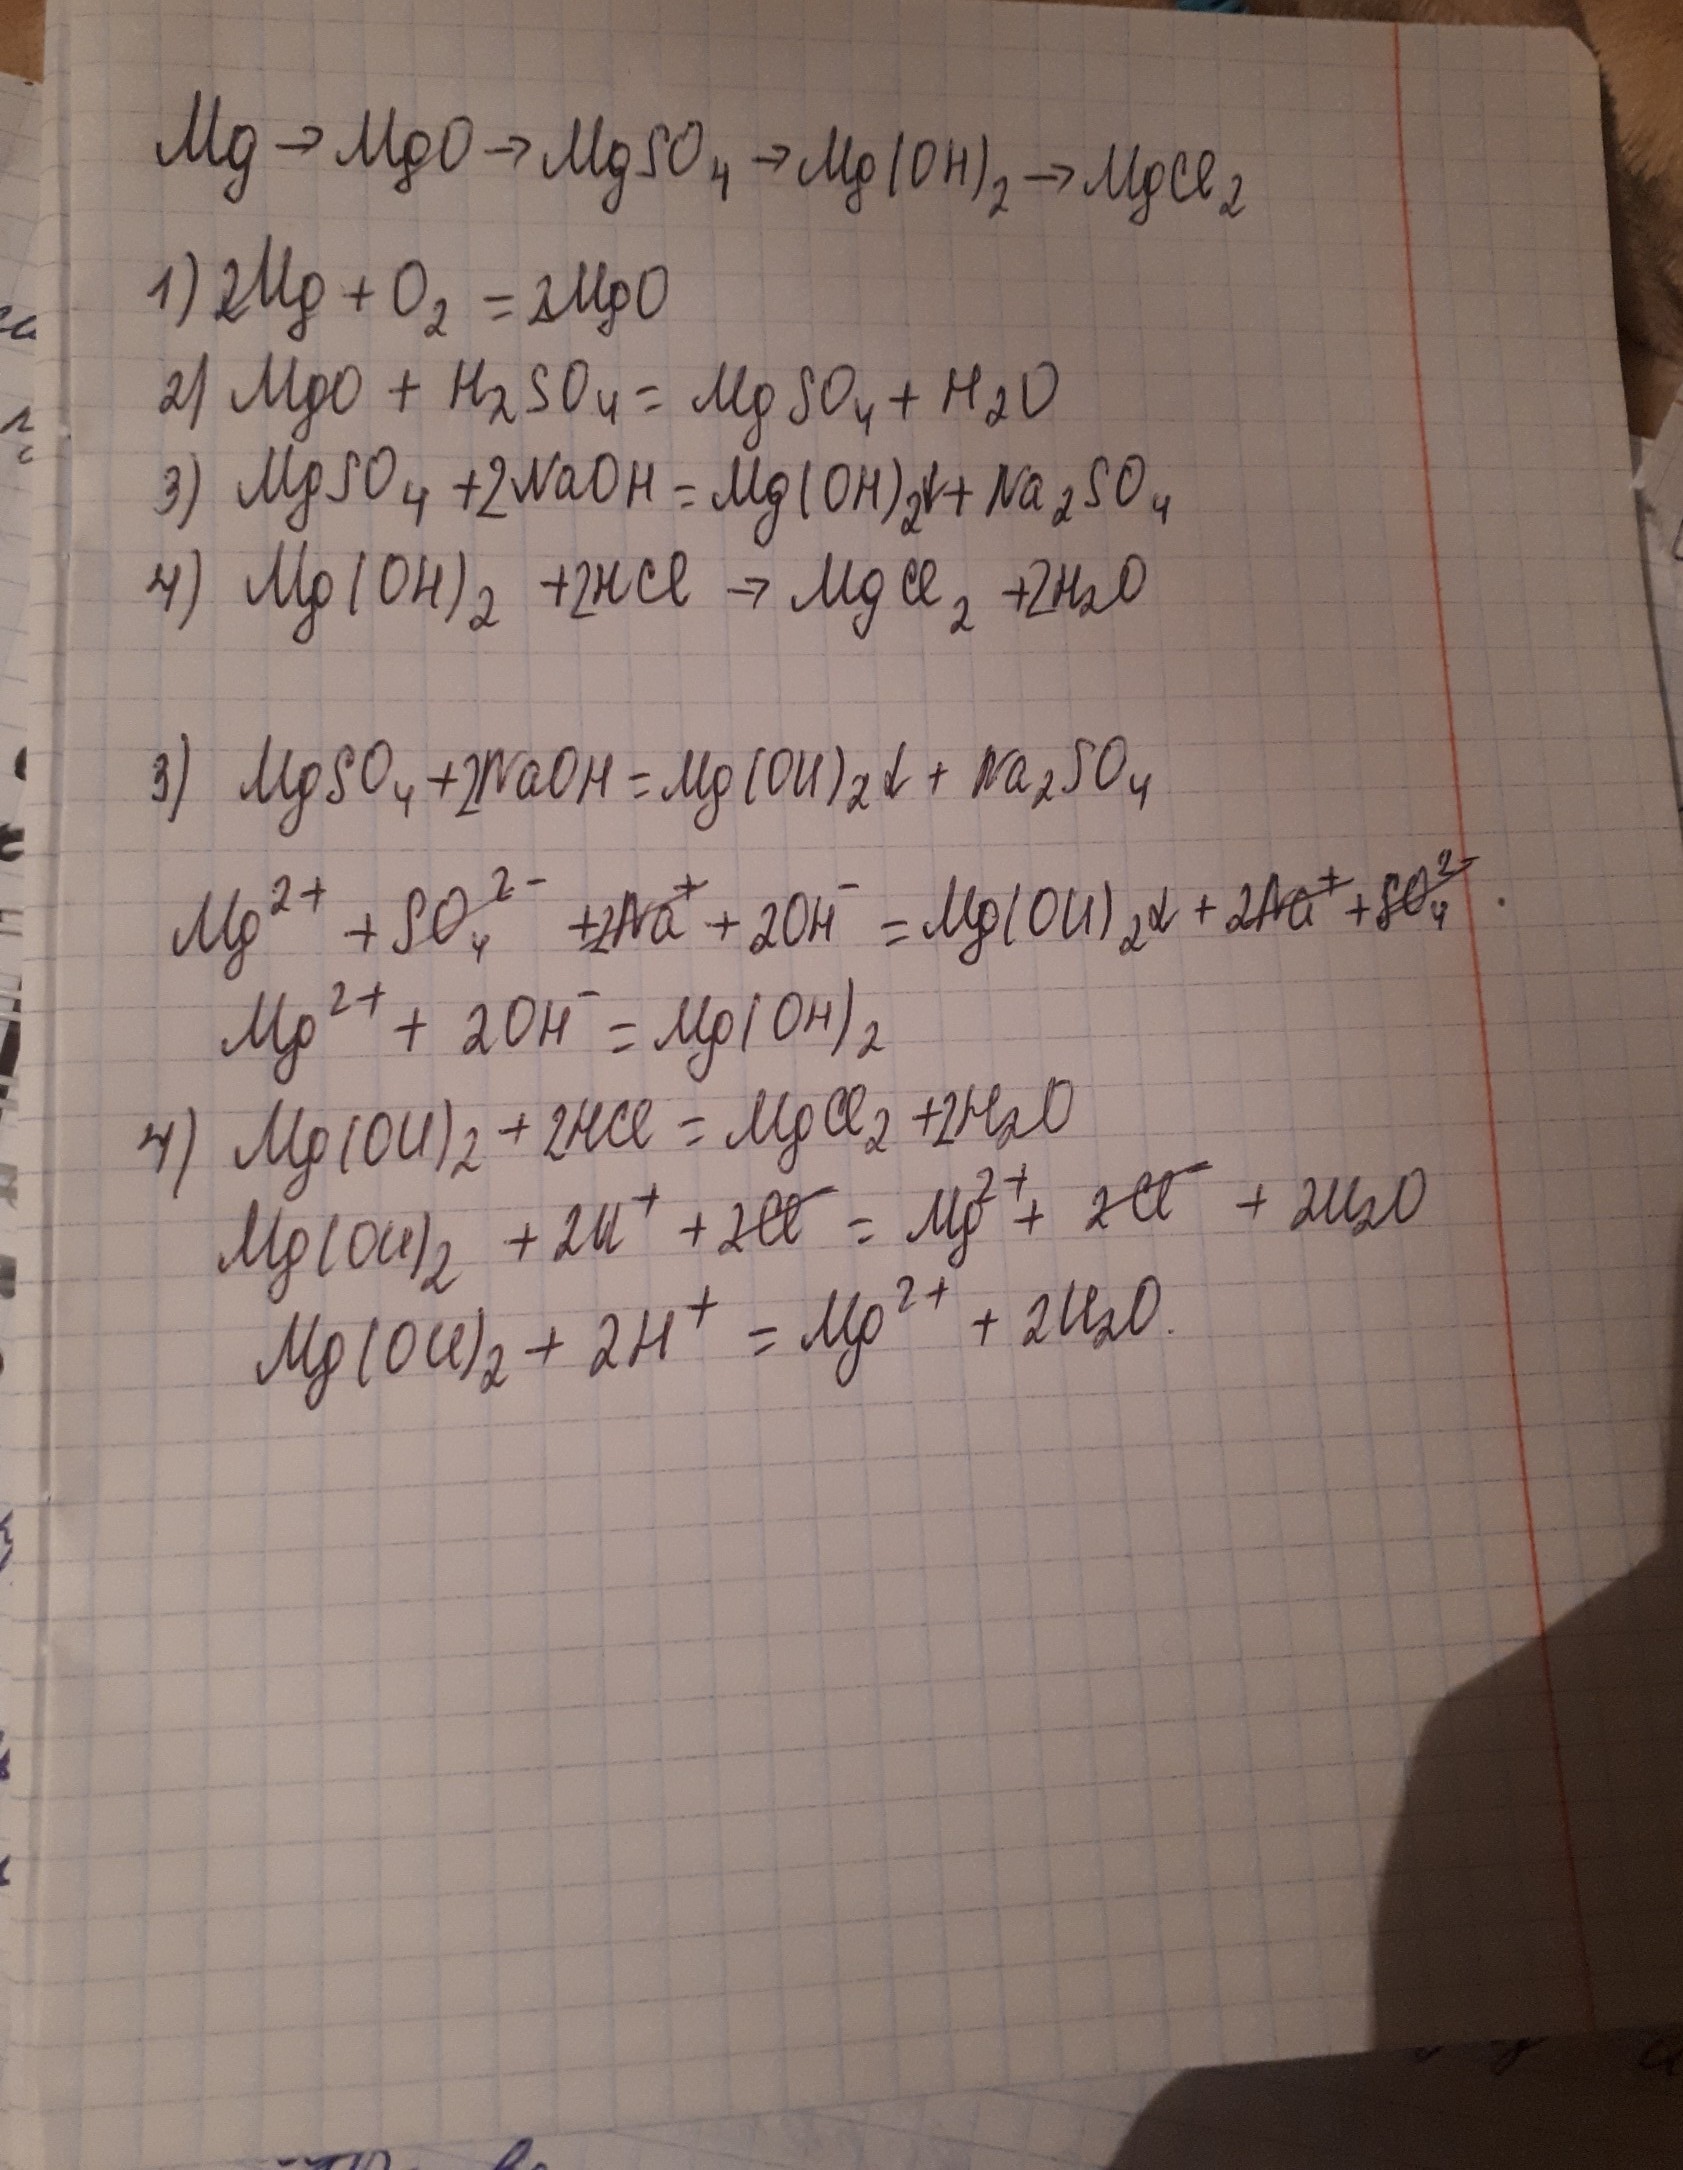 Mg → MgO → MgSO₄ → Mg(OH)₂ → MgCl₂
1) 2Mg + O₂ = 2MgO
2) MgO + H₂SO₄ = MgSO₄ + H₂O
3) MgSO₄ + 2NaOH = Mg(OH)₂↓ + Na₂SO₄
4) Mg(OH)₂ + 2HCl → MgCl₂ + 2H₂O
3) MgSO₄ + 2NaOH = Mg(OH)₂↓ + Na₂SO₄
Mg²⁺ + SO₄²⁻ + 2Na⁺ + 2OH⁻ = Mg(OH)₂↓ + 2Na⁺ + SO₄²⁻.
Mg²⁺ + 2OH⁻ = Mg(OH)₂
4) Mg(OH)₂ + 2HCl = MgCl₂ + 2H₂O
Mg(OH)₂ + 2H⁺ + 2Cl⁻ = Mg²⁺ + 2Cl⁻ + 2H₂O
Mg(OH)₂ + 2H⁺ = Mg²⁺ + 2H₂O.